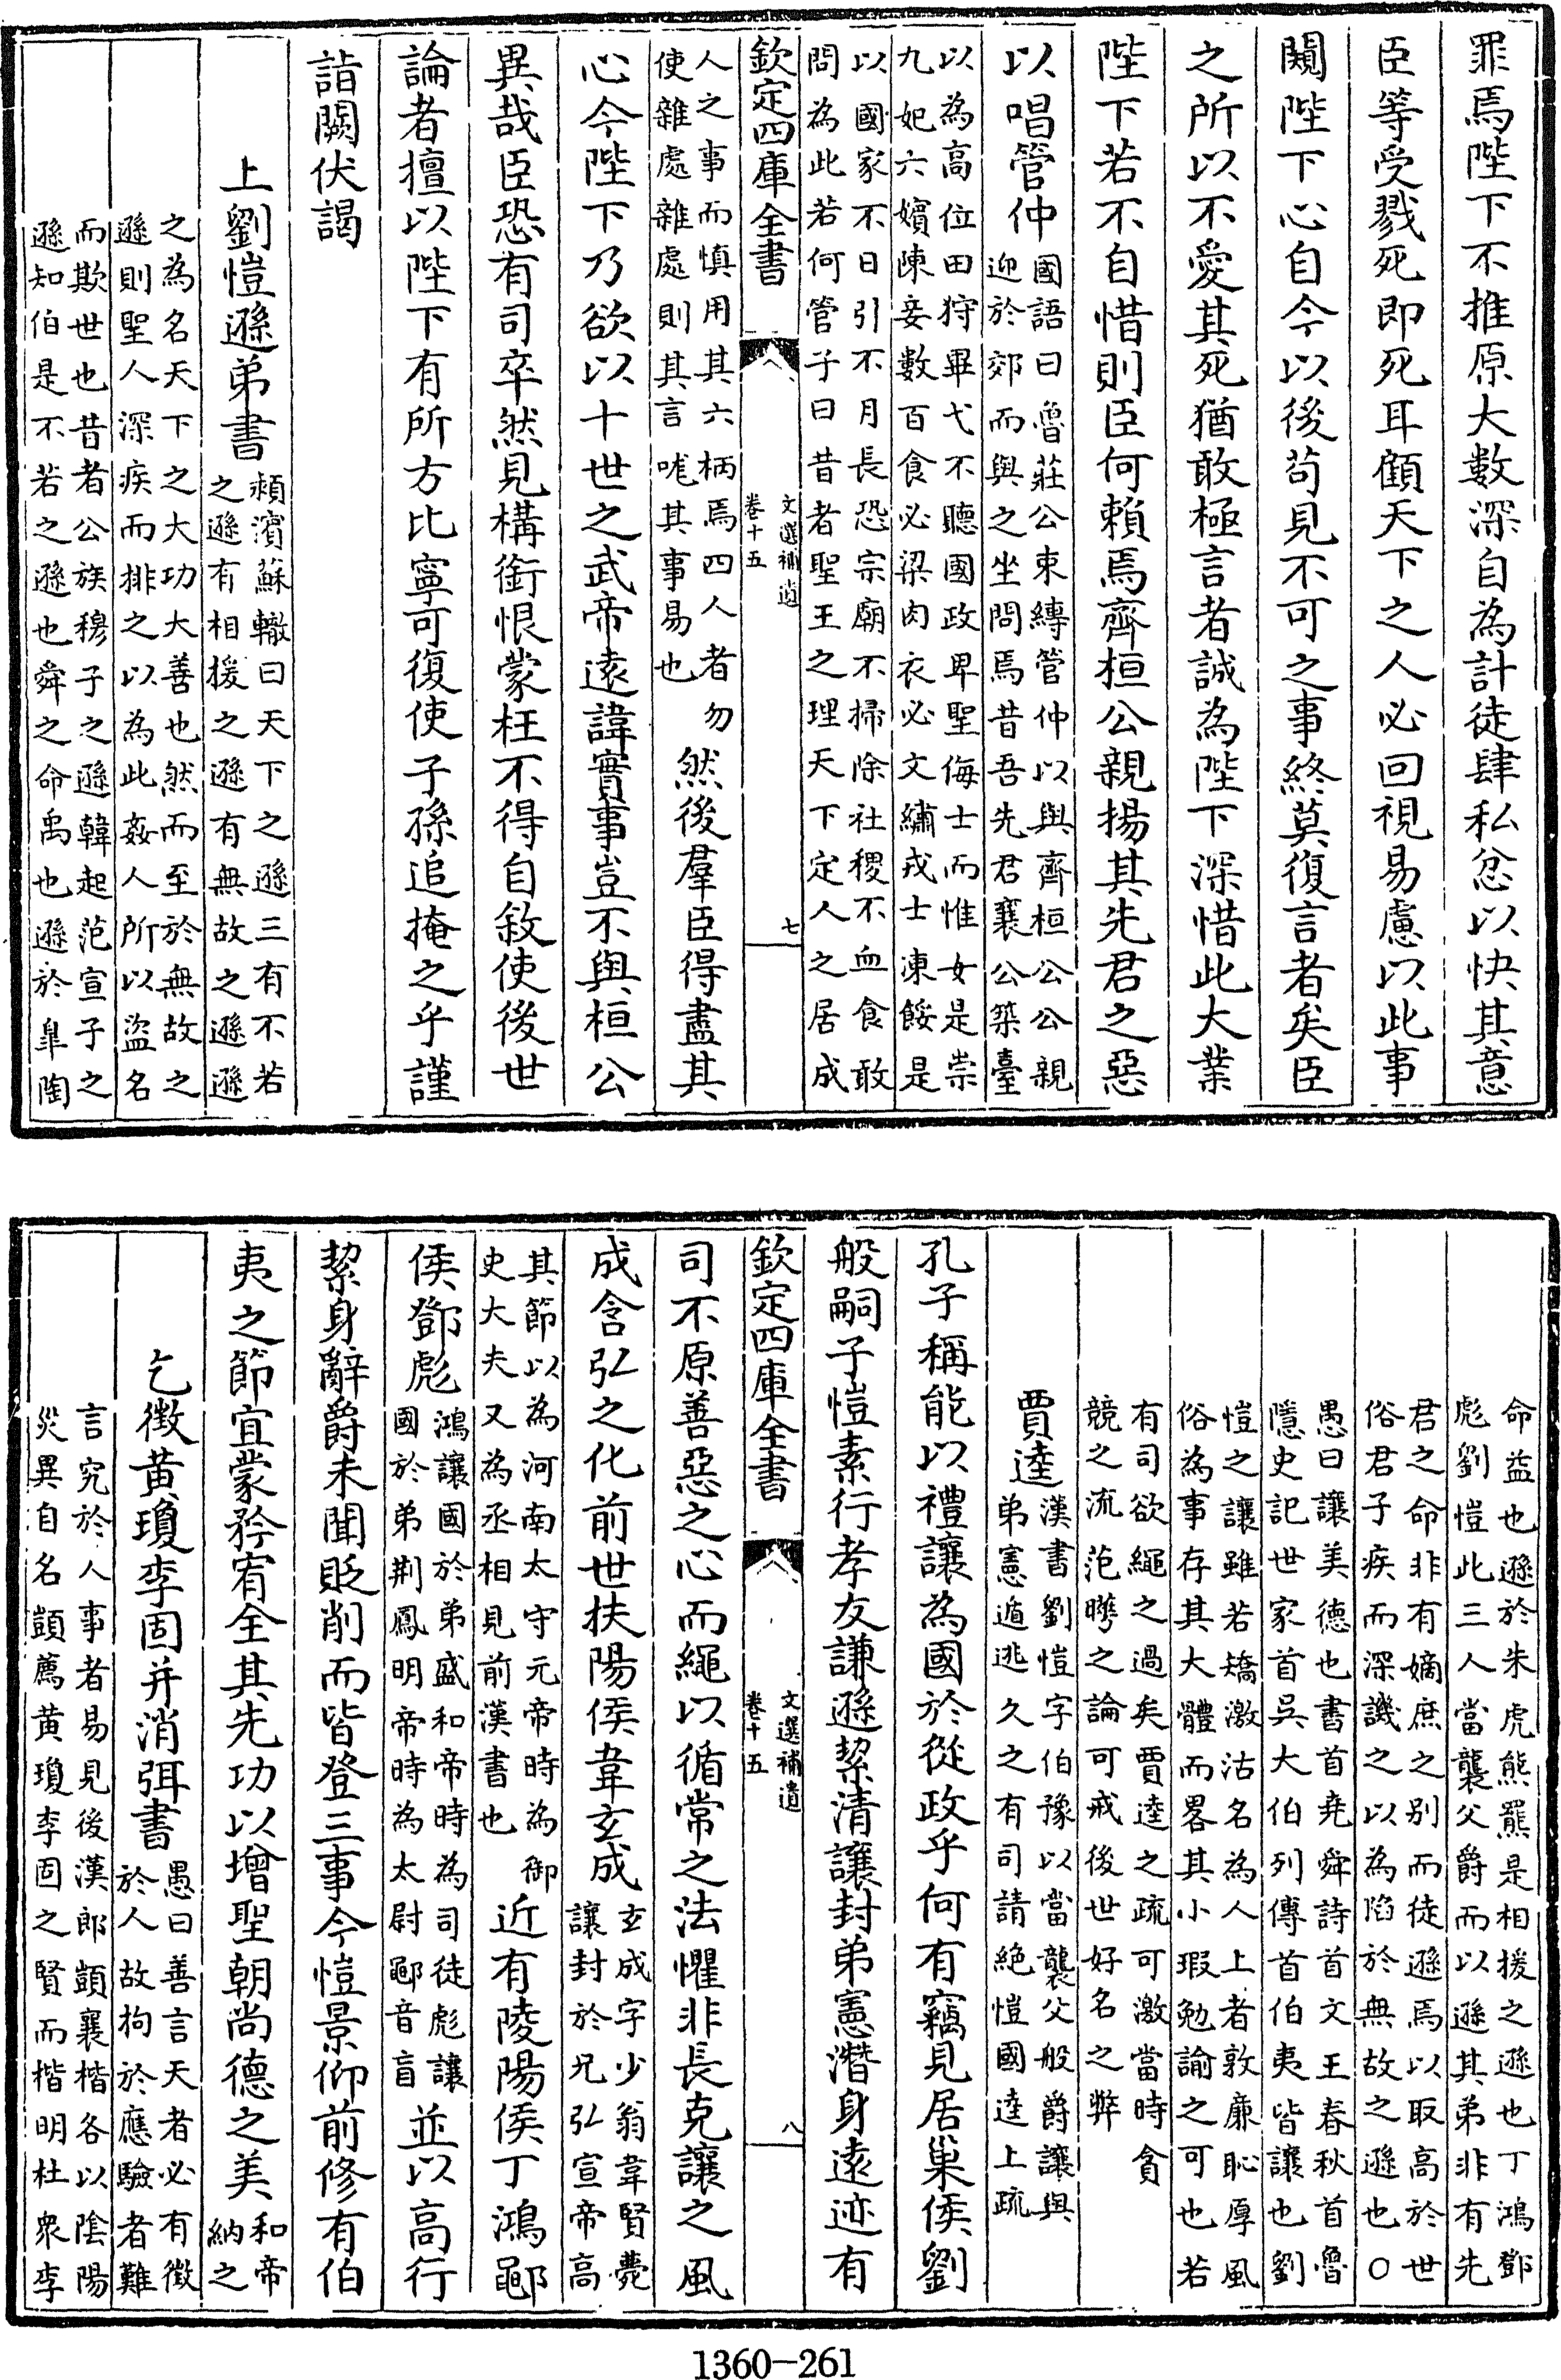 罪焉陛下不推原大數深自為計徒肆私忿以快其意
臣等受戮死即死耳顧天下之人必回視易慮以此事
闚陛下心自今以後苟見不可之事終莫復言者矣臣
之所以不愛其死猶敢極言者誠為陛下深惜此大業
陛下若不自惜則臣何賴焉齊桓公親揚其先君之惡
以唱管仲
國語曰魯莊公束縛管仲以與齊桓公公親
迎於郊而與之坐問焉昔吾先君襄公築臺
以為高位田狩畢弋不聽國政卑聖侮士而惟女是崇
九妃六嬪陳妾數百食必梁肉衣必文繡戎士凍餒是
以國家不日引不月長恐宗廟不掃除社稷不血食敢
問為此若何管子曰昔者聖王之理天下定人之居成
欽定四庫全書
文選補遺
卷十五
七
人之事而慎用其六柄焉四人者勿
使雜處雜處則其言哤其事易也
然後羣臣得盡其
心今陛下乃欲以十世之武帝遠諱實事豈不與桓公
異哉臣恐有司卒然見構銜恨蒙枉不得自敘使後世
論者擅以陛下有所方比寧可復使子孫追掩之乎謹
詣闕伏謁
上劉愷遜弟書
頴濱蘇轍曰天下之遜三有不若
之遜有相援之遜有無故之遜遜
之為名天下之大功大善也然而至於無故之
遜則聖人深疾而排之以為此姦人所以盜名
而欺世也昔者公族穆子之遜韓起范宣子之
遜知伯是不若之遜也舜之命禹也遜於臯陶
命益也遜於朱虎熊羆是相援之遜也丁鴻鄧
彪劉愷此三人當襲父爵而以遜其弟非有先
君之命非有嫡庶之别而徒遜焉以取高於世
俗君子疾而深譏之以為陷於無故之遜也○
愚曰讓美德也書首堯舜詩首文王春秋首魯
隱史記世家首吳大伯列傳首伯夷皆讓也劉
愷之讓雖若矯激沽名為人上者敦廉恥厚風
俗為事存其大體而畧其小瑕勉諭之可也若
有司欲繩之過矣賈逵之疏可激當時貪
競之流范曄之論可戒後世好名之弊
賈逵
漢書劉愷字伯豫以當襲父般爵讓與
弟憲遁逃久之有司請絕愷國逵上疏
孔子稱能以禮讓為國於從政乎何有竊見居巢侯劉
般嗣子愷素行孝友謙遜絜清讓封弟憲潛身遠迹有
欽定四庫全書
文選補遺
卷十五
八
司不原善惡之心而繩以循常之法懼非長克讓之風
成含弘之化前世扶陽侯韋玄成
玄成字少翁韋賢薨
讓封於兄弘宣帝高
其節以為河南太守元帝時為御
史大夫又為丞相見前漢書也
近有陵陽侯丁鴻鄳
侯鄧彪
鴻讓國於弟盛和帝時為司徒彪讓
國於弟荆鳳明帝時為太尉鄳音盲
並以高行
絜身辭爵未聞貶削而皆登三事今愷景仰前修有伯
夷之節宜蒙矜宥全其先功以增聖朝尚德之美
和帝
納之
乞徴黃瓊李固并消弭書
愚曰善言天者必有徴
於人故拘於應驗者難
言究於人事者易見後漢郎顗襄楷各以陰陽
災異自名顗薦黃瓊李固之賢而楷明杜衆李
1360-261